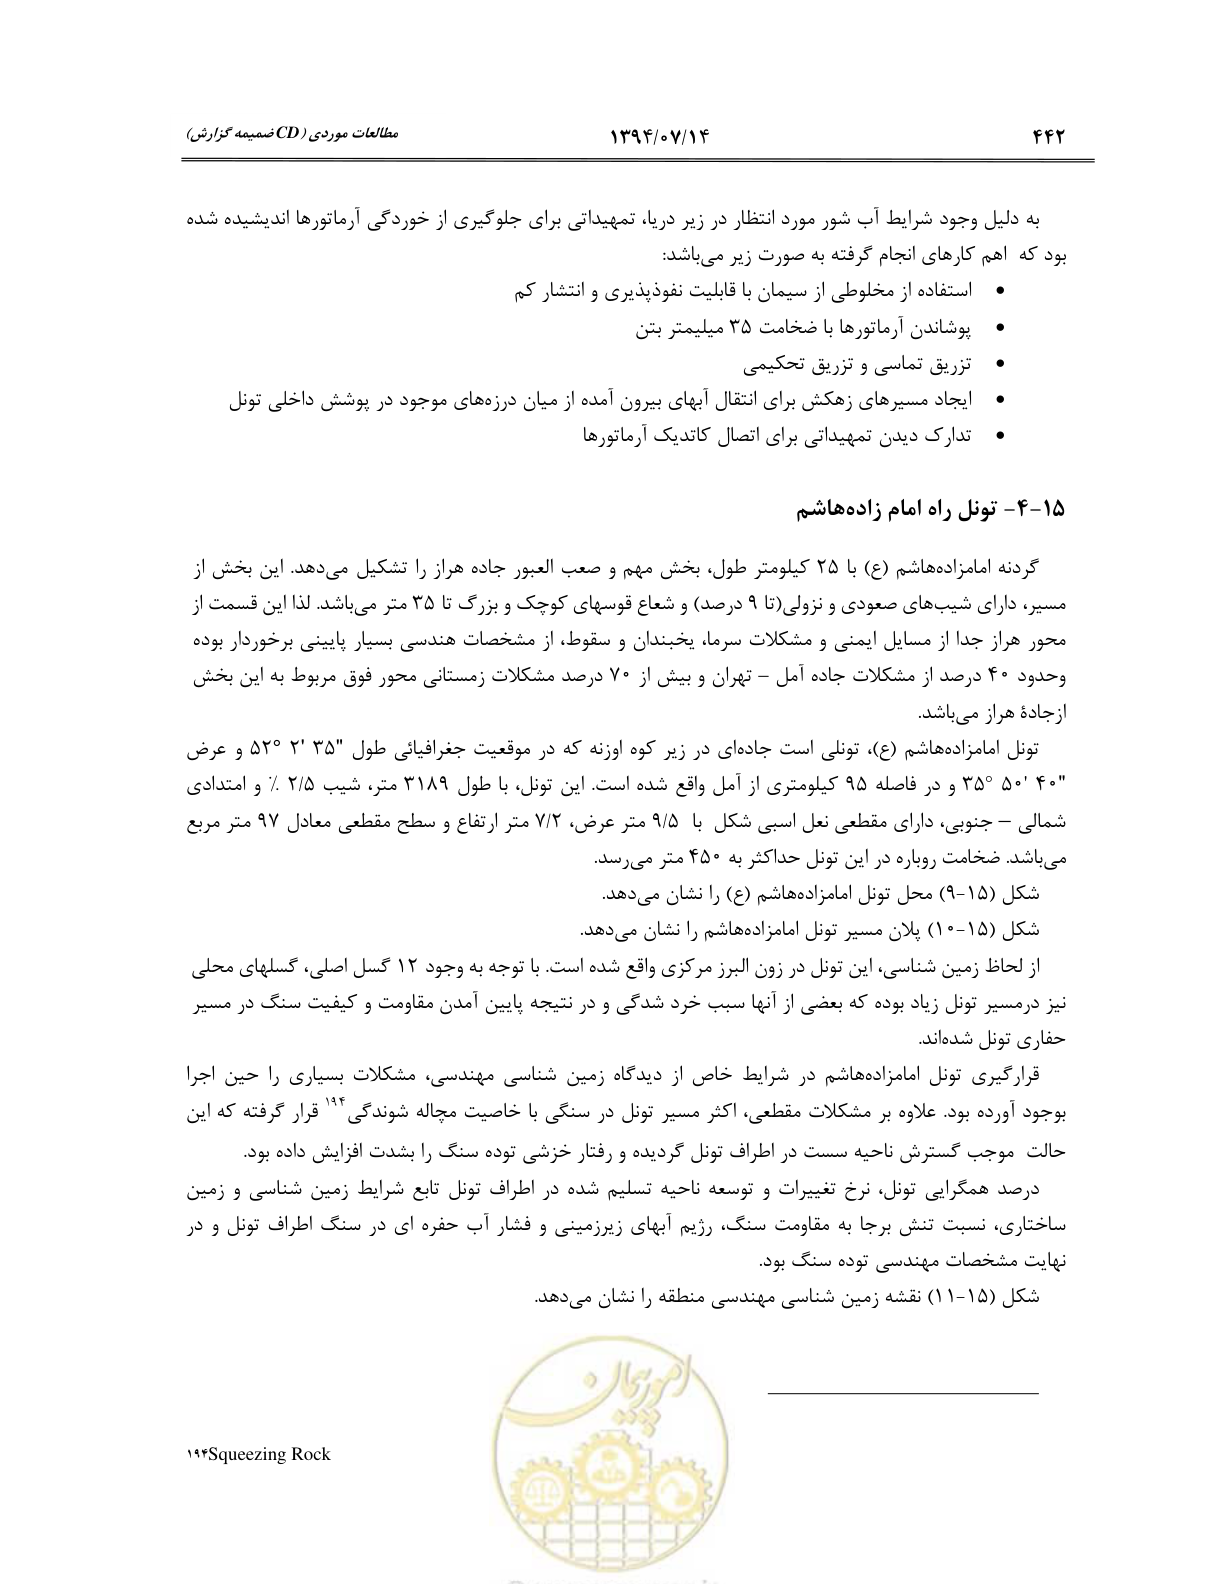 ۴۴۲ ۱۳۹۴/۰۷/۱۴ مطالعات موردی (CD ضمیمه گزارش)
به دلیل وجود شرایط آب شور مورد انتظار در زیر دریا، تمهیداتی برای جلوگیری از خوردگی آرماتورها اندیشیده شده
بود که اهم کارهای انجام گرفته به صورت زیر می‌باشد:
• استفاده از مخلوطی از سیمان با قابلیت نفوذپذیری و انتشار کم
• پوشاندن آرماتورها با ضخامت ۳۵ میلیمتر بتن
• تزریق تماسی و تزریق تحکیمی
• ایجاد مسیرهای زهکش برای انتقال آبهای بیرون آمده از میان درزه‌های موجود در پوشش داخلی تونل
• تدارک دیدن تمهیداتی برای اتصال کاتدیک آرماتورها
۱۵-۴- تونل راه امام زاده‌هاشم
گردنه امامزاده‌هاشم (ع) با ۲۵ کیلومتر طول، بخش مهم و صعب العبور جاده هراز را تشکیل می‌دهد. این بخش از
مسیر، دارای شیب‌های صعودی و نزولی(تا ۹ درصد) و شعاع قوسهای کوچک و بزرگ تا ۳۵ متر می‌باشد. لذا این قسمت از
محور هراز جدا از مسایل ایمنی و مشکلات سرما، یخبندان و سقوط، از مشخصات هندسی بسیار پایینی برخوردار بوده
وحدود ۴۰ درصد از مشکلات جاده آمل – تهران و بیش از ۷۰ درصد مشکلات زمستانی محور فوق مربوط به این بخش
ازجادۀ هراز می‌باشد.
تونل امامزاده‌هاشم (ع)، تونلی است جاده‌ای در زیر کوه اوزنه که در موقعیت جغرافیائی طول "۳۵ '۲ °۵۲ و عرض
"۴۰ '۵۰ °۳۵ و در فاصله ۹۵ کیلومتری از آمل واقع شده است. این تونل، با طول ۳۱۸۹ متر، شیب ۲/۵ ٪ و امتدادی
شمالی – جنوبی، دارای مقطعی نعل اسبی شکل با ۹/۵ متر عرض، ۷/۲ متر ارتفاع و سطح مقطعی معادل ۹۷ متر مربع
می‌باشد. ضخامت روباره در این تونل حداکثر به ۴۵۰ متر می‌رسد.
شکل (۱۵-۹) محل تونل امامزاده‌هاشم (ع) را نشان می‌دهد.
شکل (۱۵-۱۰) پلان مسیر تونل امامزاده‌هاشم را نشان می‌دهد.
از لحاظ زمین شناسی، این تونل در زون البرز مرکزی واقع شده است. با توجه به وجود ۱۲ گسل اصلی، گسلهای محلی
نیز درمسیر تونل زیاد بوده که بعضی از آنها سبب خرد شدگی و در نتیجه پایین آمدن مقاومت و کیفیت سنگ در مسیر
حفاری تونل شده‌اند.
قرارگیری تونل امامزاده‌هاشم در شرایط خاص از دیدگاه زمین شناسی مهندسی، مشکلات بسیاری را حین اجرا
بوجود آورده بود. علاوه بر مشکلات مقطعی، اکثر مسیر تونل در سنگی با خاصیت مچاله شوندگی۱۹۴ قرار گرفته که این
حالت موجب گسترش ناحیه سست در اطراف تونل گردیده و رفتار خزشی توده سنگ را بشدت افزایش داده بود.
درصد همگرایی تونل، نرخ تغییرات و توسعه ناحیه تسلیم شده در اطراف تونل تابع شرایط زمین شناسی و زمین
ساختاری، نسبت تنش برجا به مقاومت سنگ، رژیم آبهای زیرزمینی و فشار آب حفره ای در سنگ اطراف تونل و در
نهایت مشخصات مهندسی توده سنگ بود.
شکل (۱۵-۱۱) نقشه زمین شناسی مهندسی منطقه را نشان می‌دهد.
امور پیمان
۱۹۴Squeezing Rock